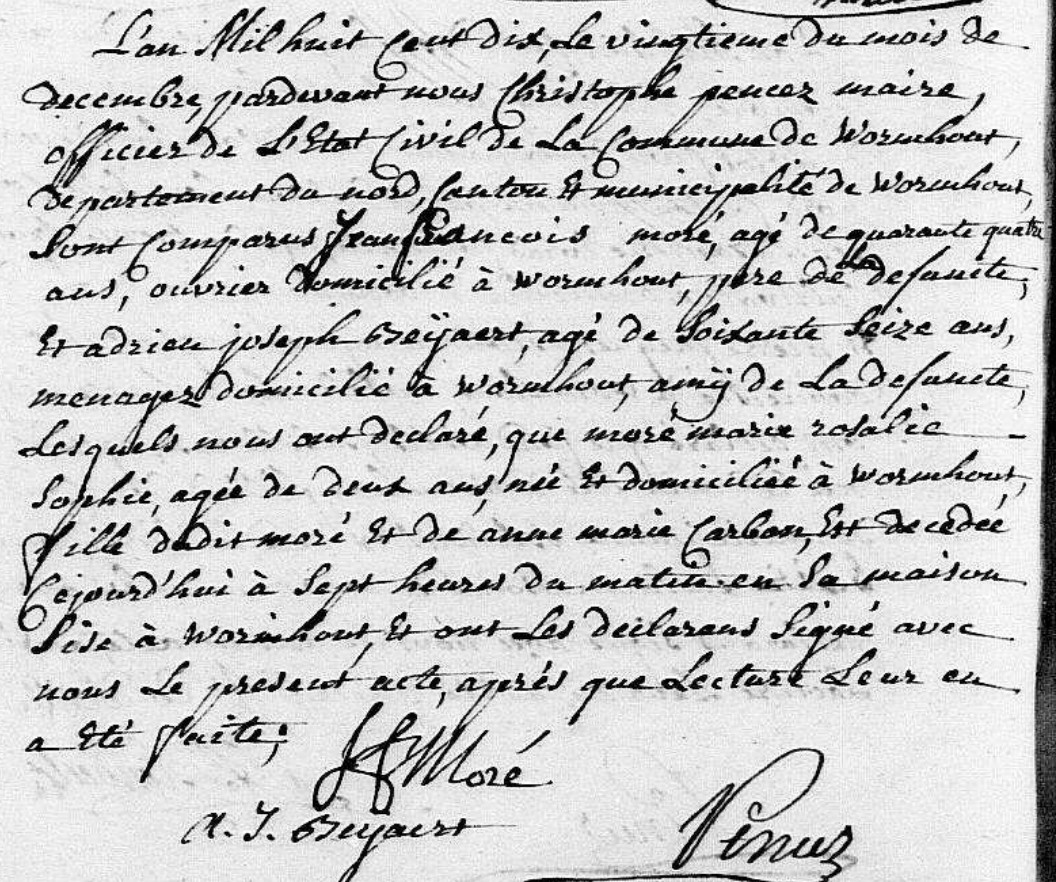 L'an Mil huit Cent dix, Le vingtieme du mois de
decembre, pardevant nous Christophe penez maire,
officier de L'Etat Civil de La Commune de Wormhout,
departement du nord, Canton Et municipalité de Wormhout,
Sont Comparus Jean francois moré, agé de quarante quatre
ans, ouvrier domicilié à wormhout, pere de la defuncte,
Et adrien joseph Beÿaert, agé de Soixante Seize ans,
menager domicilié à wormhout, amÿ de La defuncte,
Lesquels nous ont declaré, que moré marie rosalie
Sophie, agée de deux ans, née Et domiciliéé à wormhout,
fille dudit moré Et de anne marie Carbon, Est decedéé
Cejourd'hui à Sept heures du matin en Sa maison
Sise à wormhout, Et ont Les declarans Signé avec
nous Le present acte, aprés que Lecture Leur en
a Eté faite;
J f Moré
A. J. Beÿaert